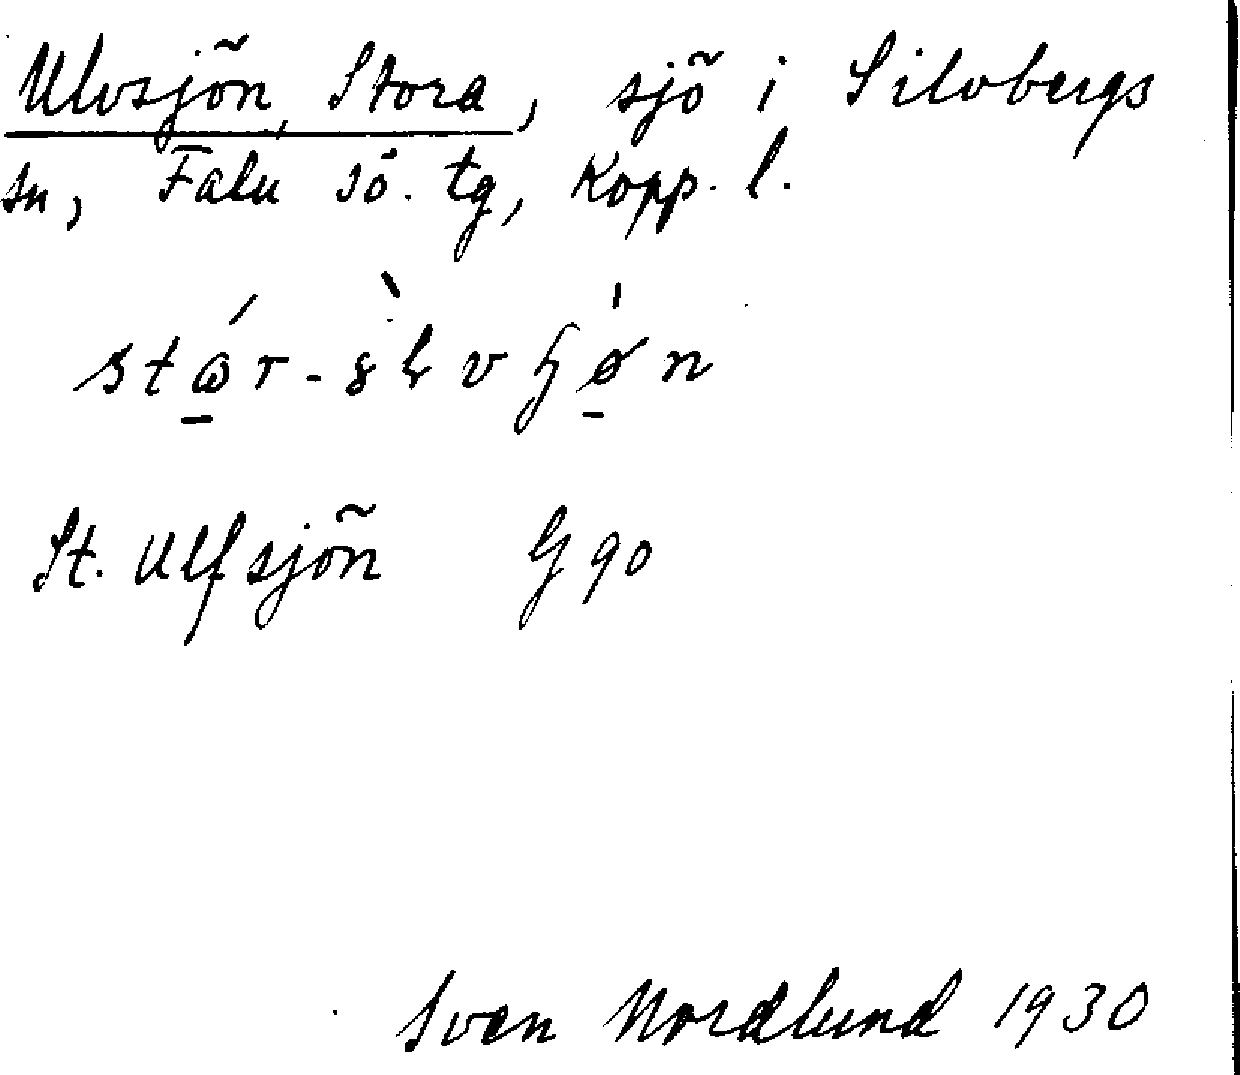 Ulvsjön, Stora, sjö i Silvbergs
sn, Falu sö. tg, Kopp. l.
St. Ulfsjön G 90
Sven Nordlund 1930